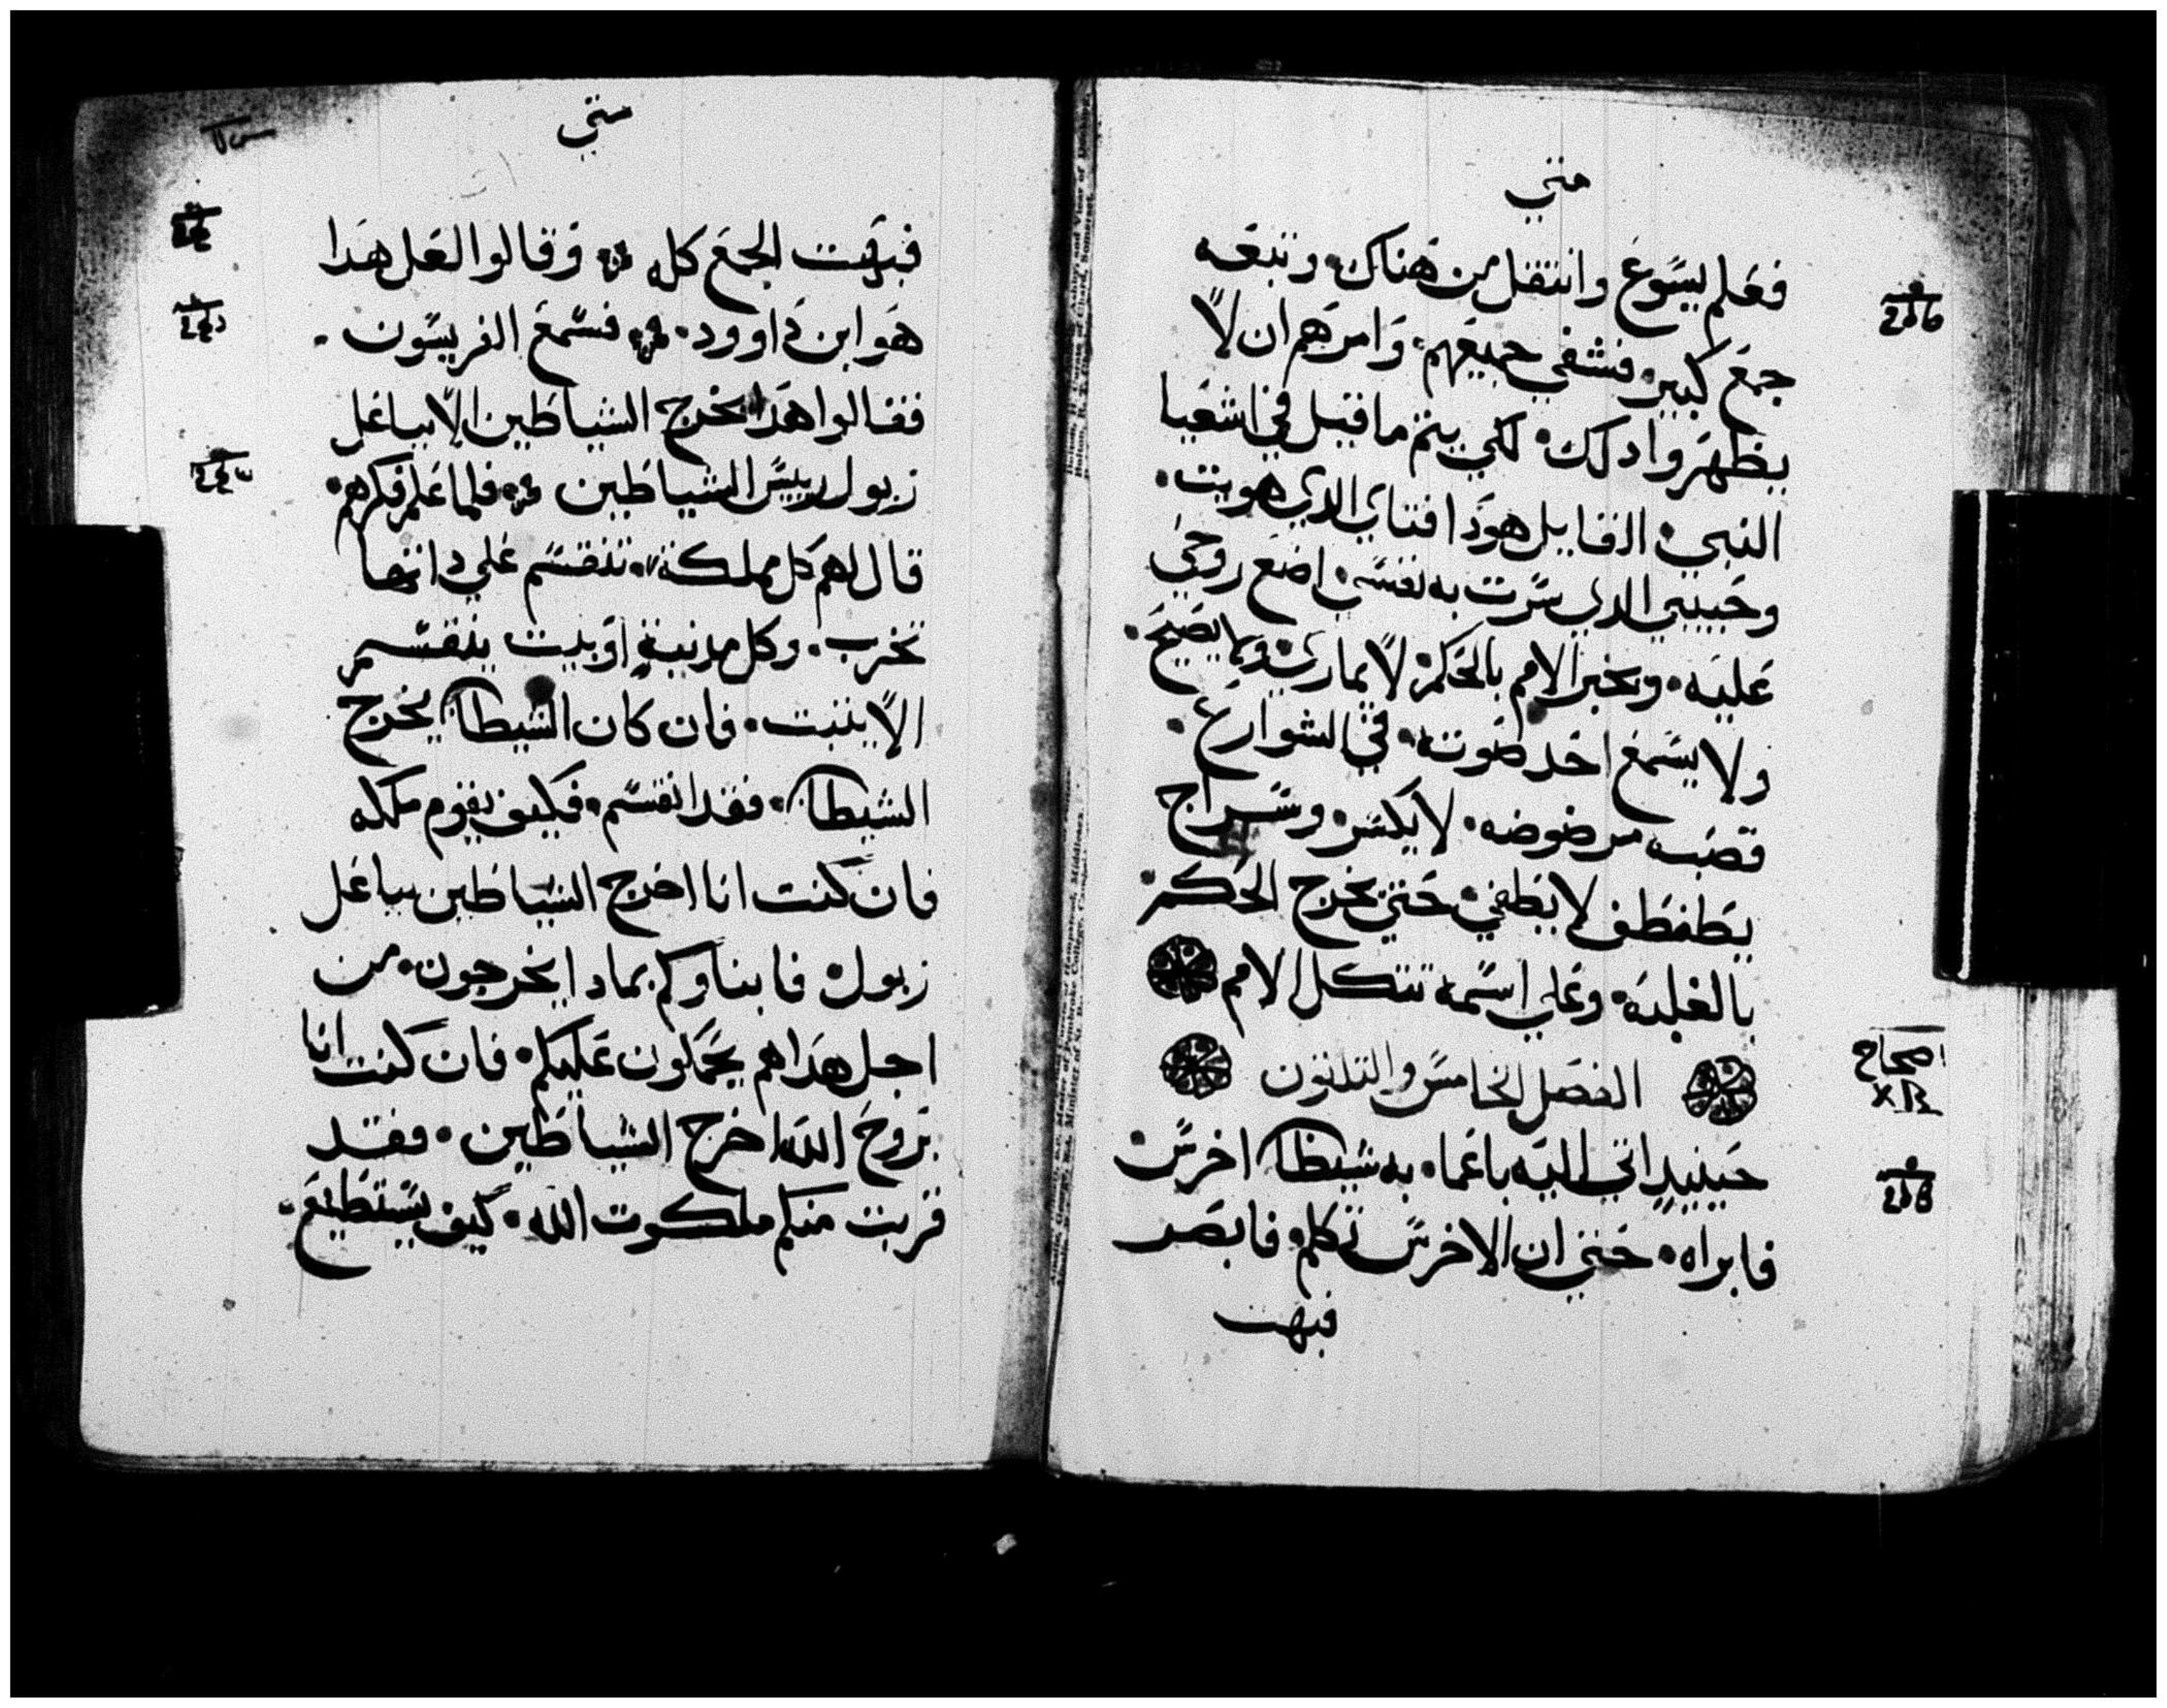 متي
فعلم يسوع وانتقل من هناك وتبعه
جمع كبير فشفي جميعهم وامرهم ان لا
يظهروا دلك لكي يتم ما قيل في اشعيا
النبي القايل هودا فتاي الدي هويت
وحبيبي الدي سرت به نفسي اضع روحي
عليه ويخبر الامم بالحكم لا يماري ولا يصيح
ولا يسمع احد صوته في الشوارع
قصبه مرضوضه لا يكسر وسراج
يطفطف لا يطفي حتي يخرج الحكم
بالغلبه وعلي اسمه تتكل الامم
الفصل الخامس والثلثون
اصحاح
حينيد اتي اليه باعما به شيطان اخرس
فابراه حتي ان الاخرس تكلم فابصر
فبهت
متي
فبهت الجمع كله وقالوا لعل هدا
هو ابن داوود فسمع الفريسون
فقالوا هدا يخرج الشياطين الا بباعل
زبول رييس الشياطين فلما علم فكرهم
قال لهم كل مملكة تنقسم علي داتها
تخرب وكل مدينة او بيت ينقسم
الا يثبت فان كان الشيطان يخرج
الشيطان فقد انقسم فكيف يقوم ملكه
فان كنت انا اخرج الشياطين بباعل
زبول فابناوكم بمادا يخرجون من
اجل هدا هم يحكمون عليكم فان كنت انا
بروح الله اخرج الشياطين فقد
قربت منكم ملكوت الله كيف يستطيع